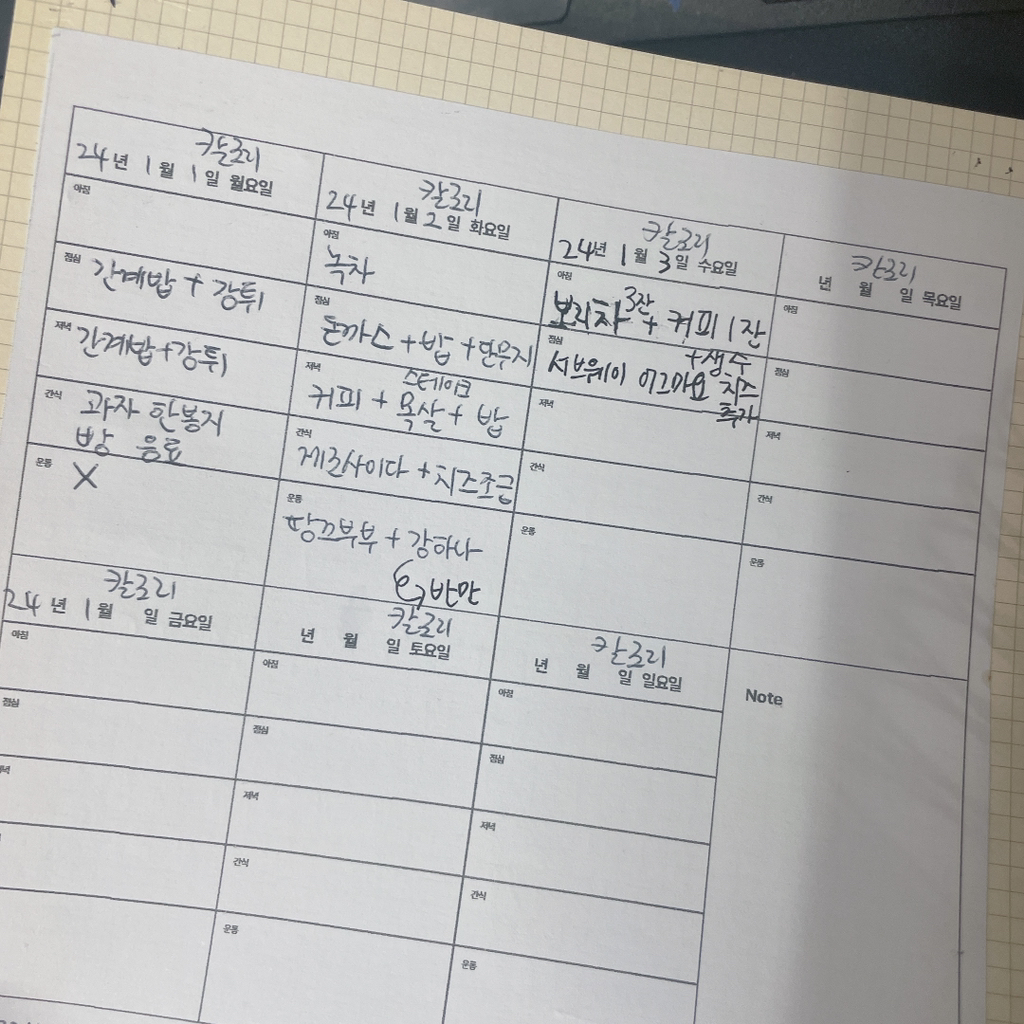 칼로리
24년 1월 1일 월요일
아침
점심 간계밥 + 강튀
저녁 간계밥+강튀
간식 과자 한봉지
빵 음료
운동
X
칼로리
24년 1월 2일 화요일
아침
녹차
점심
돈까스 +밥 +단무지
저녁
스테이크
커피 + 목살 + 밥
간식
제로사이다 +치즈조금
운동
땅끄부부 + 강하나
반만
칼로리
24년 1월 3일 수요일
아침
보리차 3잔 + 커피 1잔
+생수
점심
서브웨이 에그마요 치즈
추가
저녁
간식
운동
칼로리
년 월 일 목요일
아침
점심
저녁
간식
운동
칼로리
24년 1월 일 금요일
아침
점심
칼로리
년 월 일 토요일
아침
점심
저녁
간식
운동
칼로리
년 월 일 일요일
아침
점심
저녁
간식
운동
Note